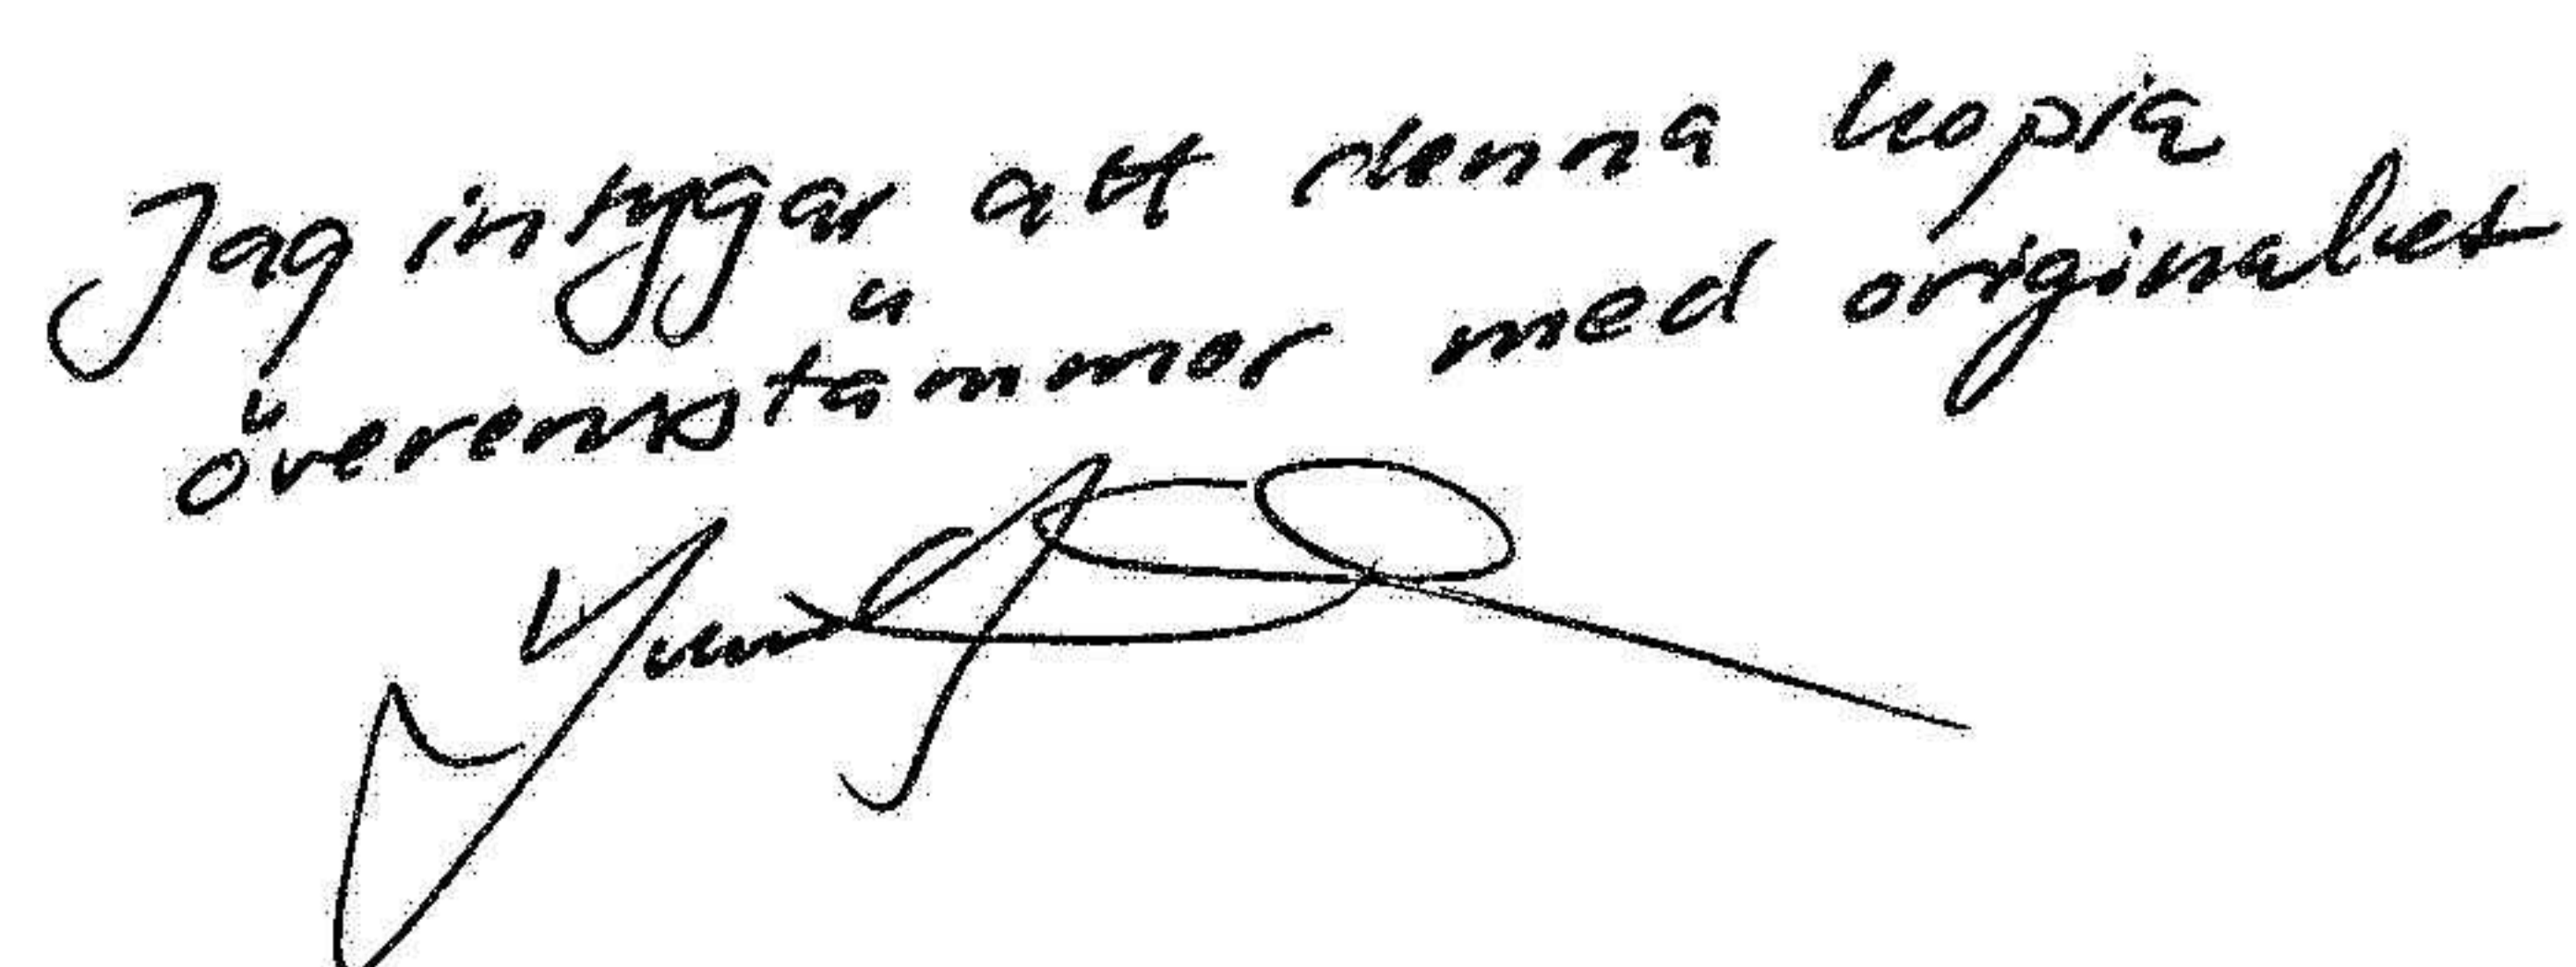 Jag intygar att denna kopia
överensstämmer med originalet